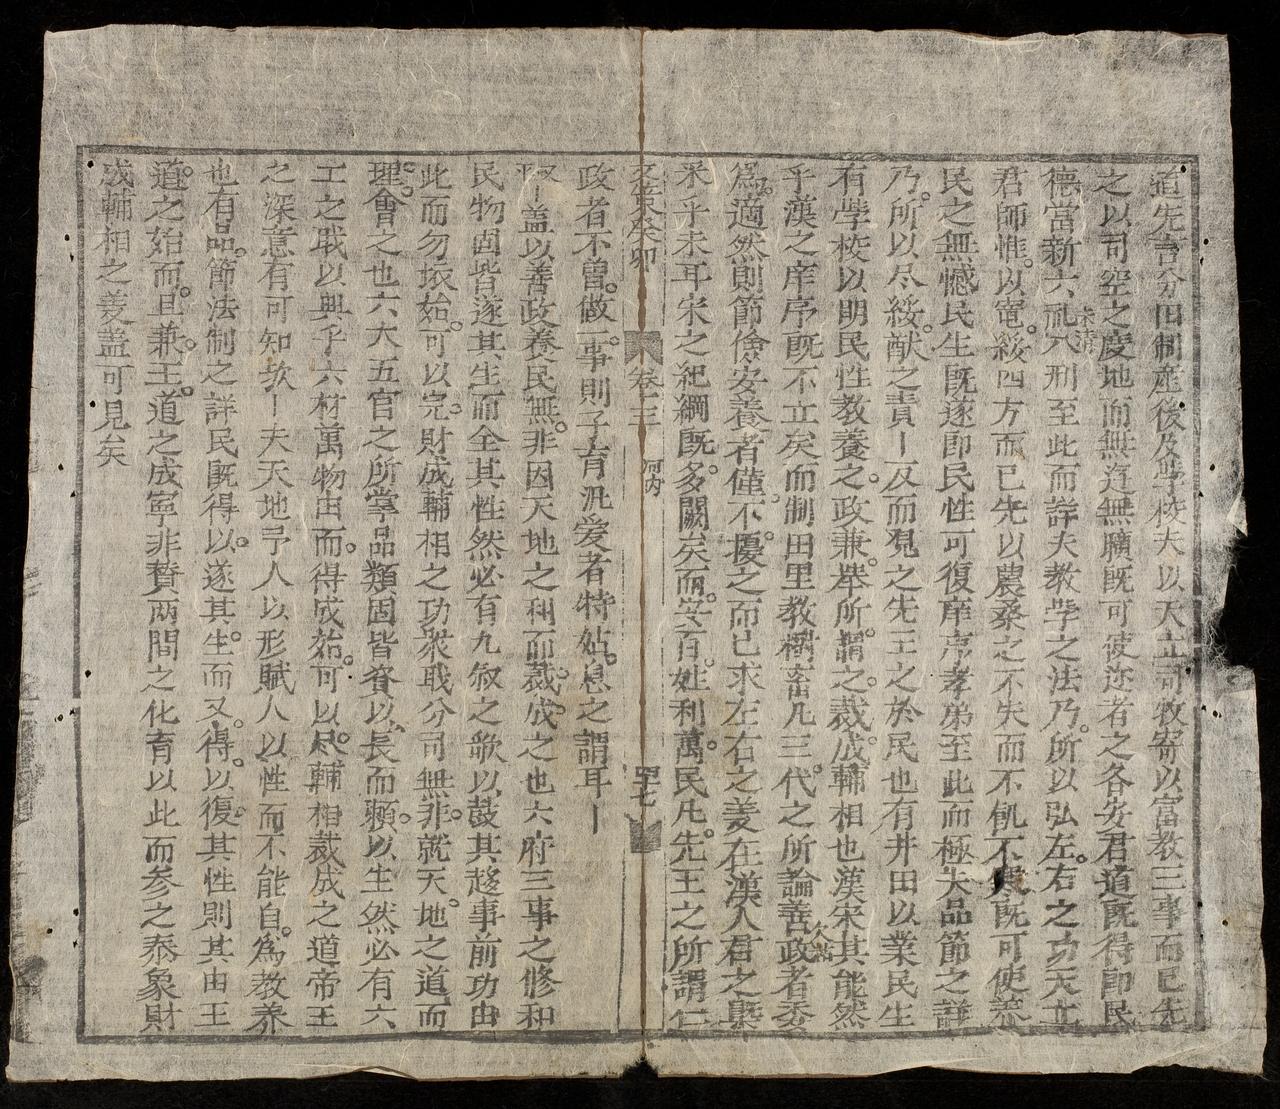 道先言分田制產後及學校夫以天立司牧寄以富教三事而已先
之以司空之慶地而無迬無曠既可使迩者之各安君道既得即民
德當新六礼八刑至此而詳夫教学之法乃所以弘左右之功天立
君師惟以寵綏四方而已先以農桑之不失而不飢不寒既可使养
民之無憾民生既遂即民性可復庠序孝弟至此而極夫品節之詳
乃所以尽綏猷之責丨反而覌之先王之於民也有井田以業民生
有学校以明民性教養之政兼举所謂之裁成輔相也漢宋其能然
乎漢之庠序既不立矣而制田里教樹畜凡三代之所論善政者委
為適然則節儉安養者僅不擾之而已求左右之義在漢人君之槩
釆乎未耳宋之紀綱既多闕矣而安百姓利萬民凡先王之所謂仁
文策癸卯
卷三
河內
四十七
政者不曾做一事則子育汎爱者特姑息之謂耳丨
丨盖以善政養民無非因天地之利而裁成之也六府三事之修和
民物固皆遂其生而全其性然必有九叙之歌以鼓其趍事前功由
此而勿坏始可以完財成輔相之功衆戢分司無非就天地之道而
理會之也六大五官之所掌品類固皆資以長而頼以生然必有六
工之戢以興乎六材萬物由而得成始可以尽輔相裁成之道帝王
之深意有可知欤丨夫天地予人以形賦人以性而不能自為教养
也有品節法制之詳民既得以遂其生而又得以復其性則其由王
道之始而且兼王道之成寧非賛两間之化育以此而参之泰象財
成輔相之義盖可見矣